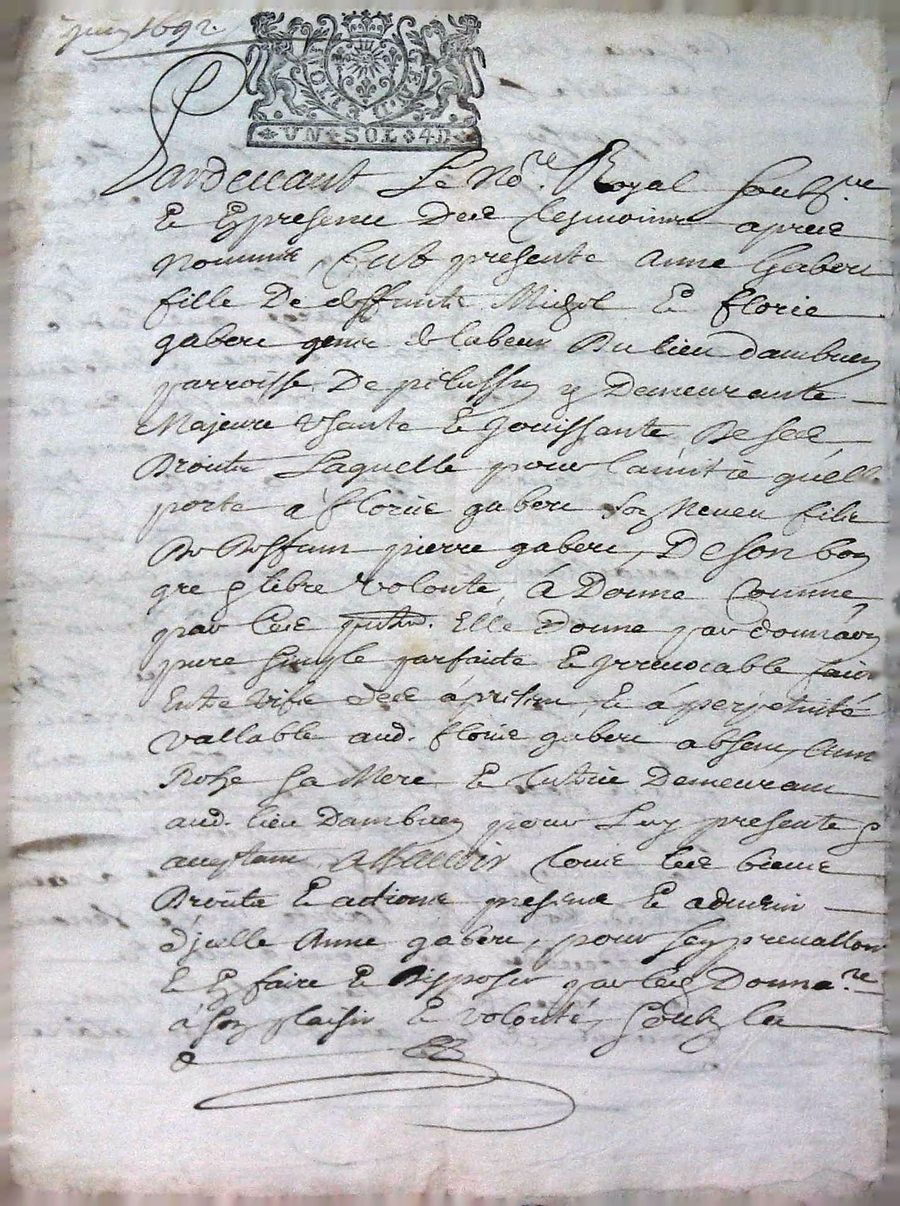 juin 1692.
UN SOL 4D
Pardevant Le No.re Royal soubz.né
Et En presence Des tesmoins apres
nommes, fut presente Anne Gaberc
fille De deffuncts Michel Et florie
gaberc gens de labeur Du lieu dambuen
parroisse De pelussin y Demeurante
Majeure usante Et Jouissante De ses
Droits Laquelle pour lamitie quelle
porte à florie gaberc son Neveu fils
De Deffunt pierre gaberc, De son bon
gre & libre volonte, à Donne comme
par les Elle Donne par donnaon
pure simple parfaite Et Irrevocable faite
Entre vifs des à presen, Et à perpetuité
vallable aud. florie gaberc absent, Anne
sa Mere Et tutrice Demeurant
aud. lieu Dambuen pour Luy presente &
acceptant Assavoir tous les biens
Droits Et actions presens Et advenir
d'icelle Anne gaberc, pour sen prevalloir
Et En faire Et Disposer par led Donna.re
à son plaisir Et volonté, soubz les